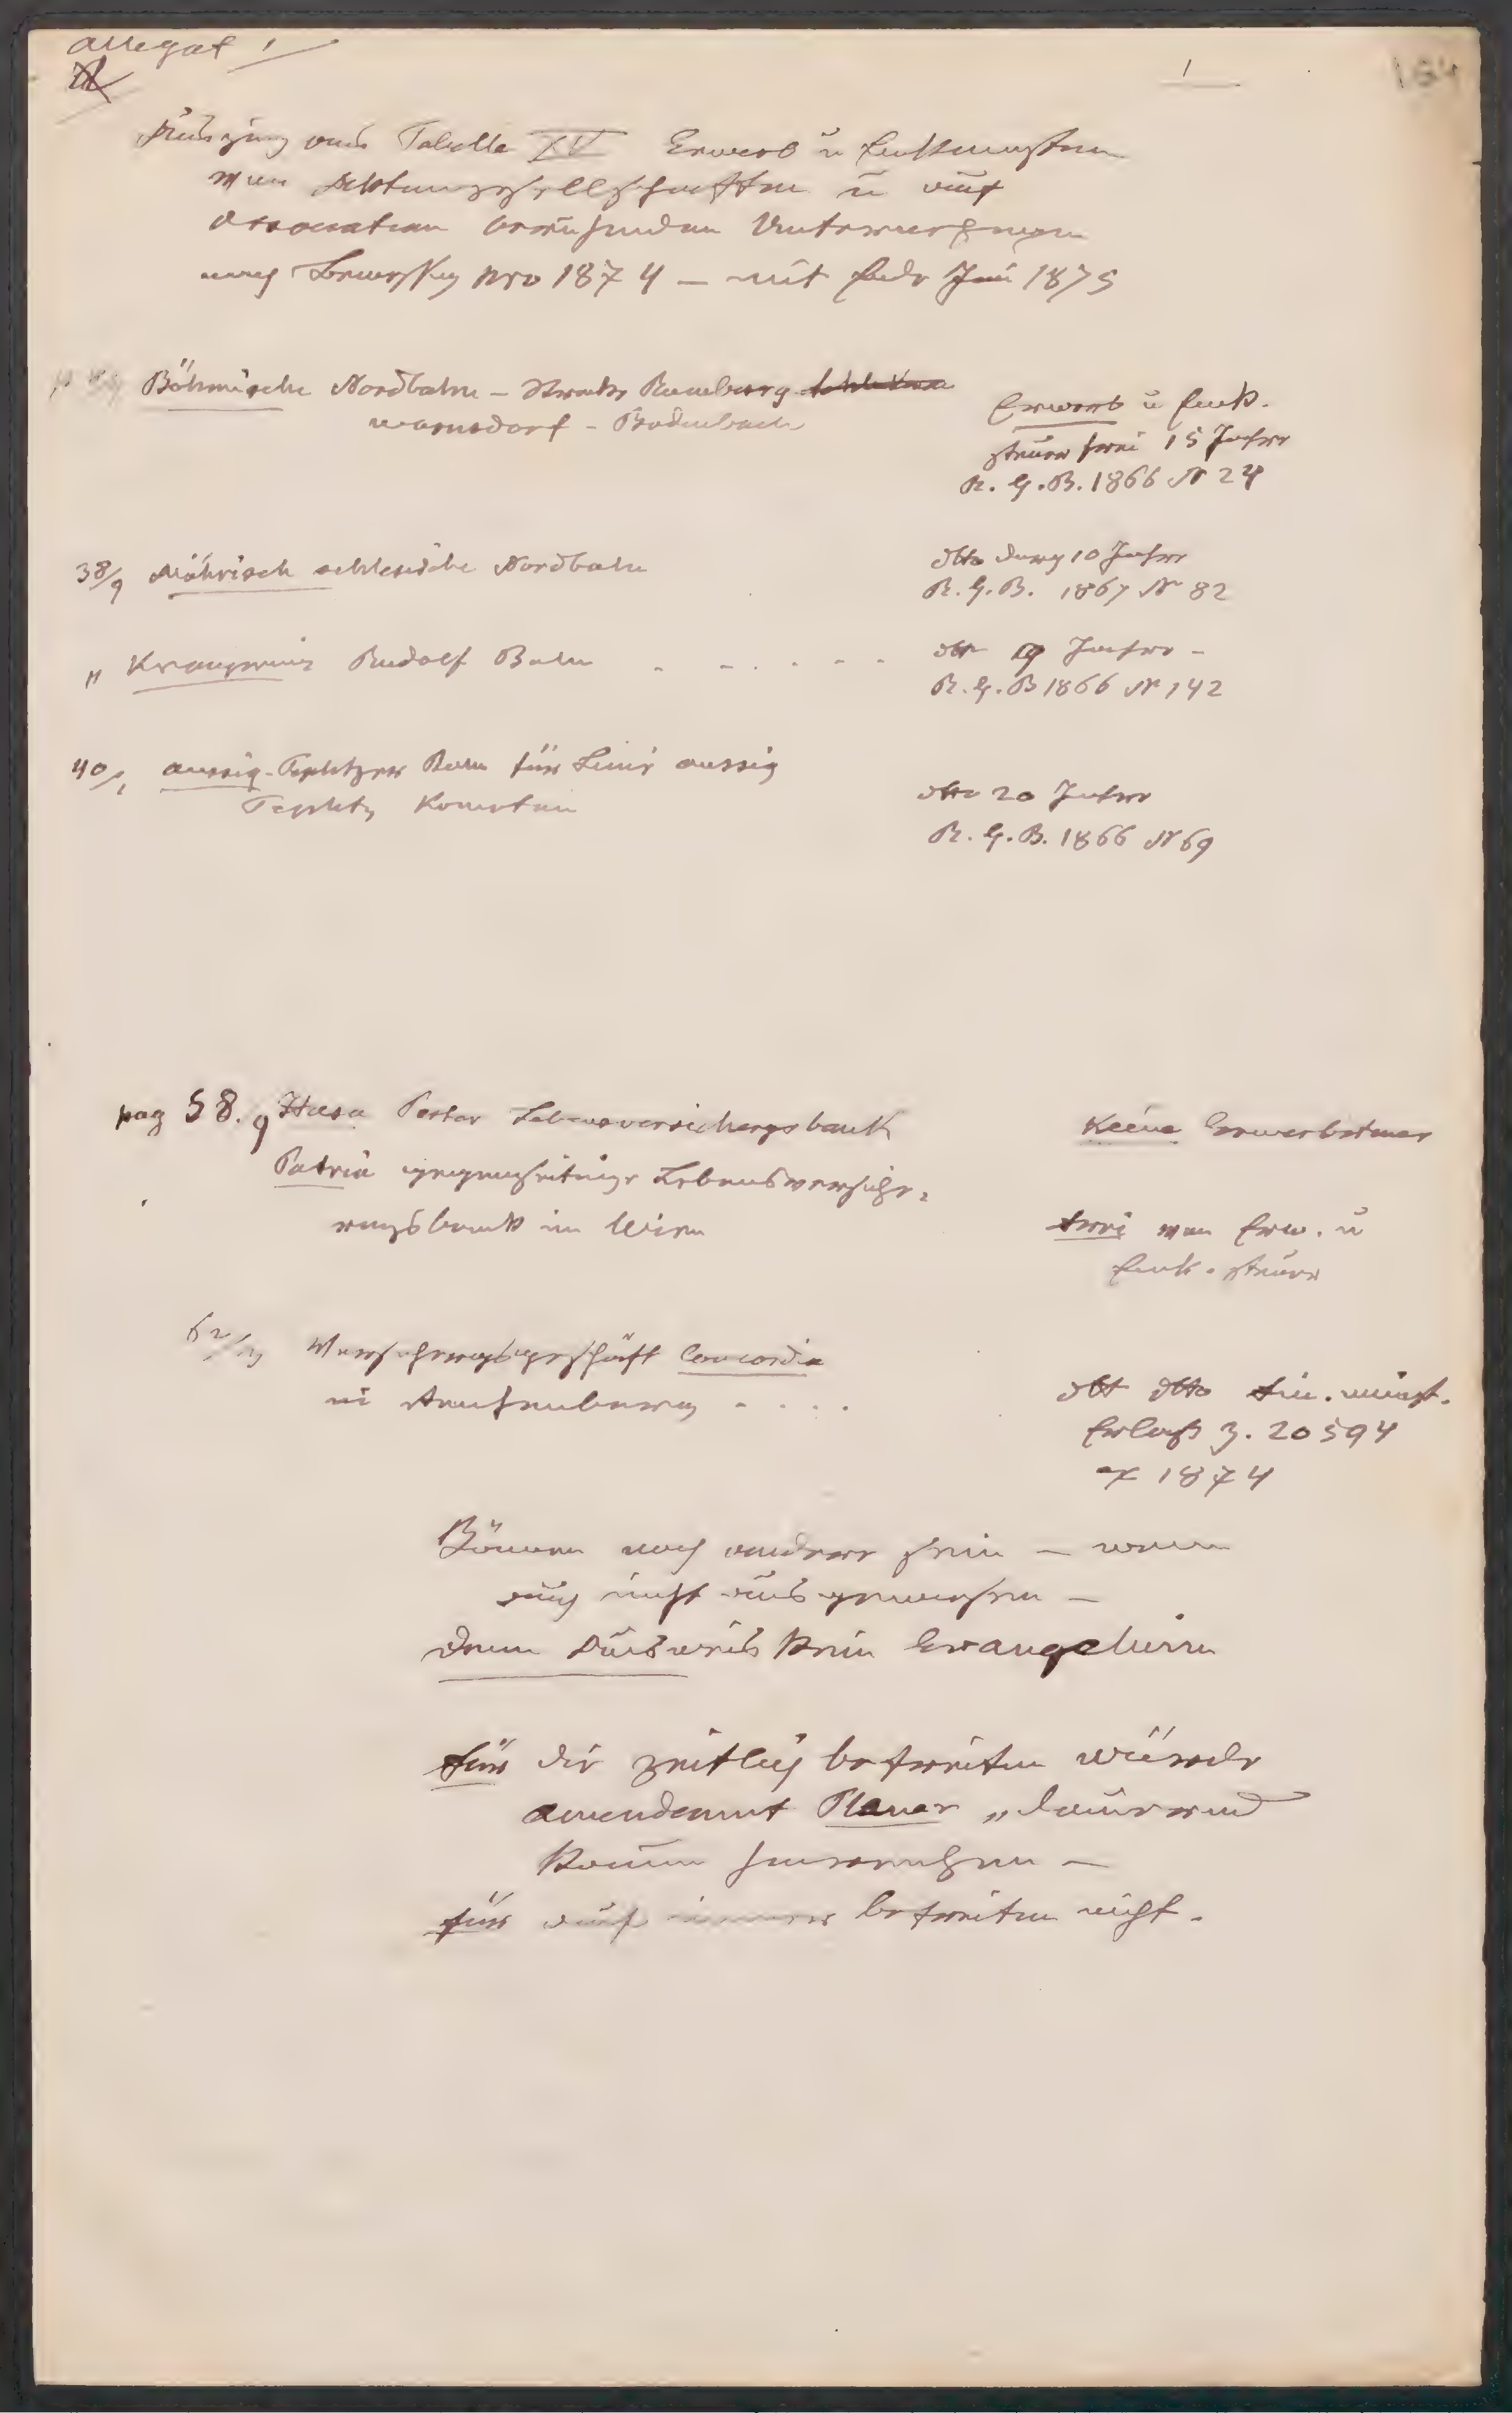 Allegat 1
1
Auszug aus Tabelle XV Erwerb u Einkommensteuer
von Aktiengesellschaften u auf
Association beruhenden Unternehmungen
nach Bemessung pro 1874 – mit Ende Juni 1875
Böhmische Nordbahn – Strecke Rumburg
Warnsdorf – Bodenbach
Erwerb u Eink.
steuer frei 15 Jahre
R. G. B. 1866 N 24
38/9 Mährisch schlesische Nordbahn
dtto durch 10 Jahre
R. G. B. 1867 Nr 82
" Kronprinz Rudolf Bahn . – . . . – .
dtto 9 Jahre –
R. G. B 1866 Nr 142
40/1 Aussig-Teplitzer Bahn für Linie Aussig
Teplitz Komotau
dtto 20 Jahre
R. G. B. 1866 N 69
pag 58.9 Haza Pester Lebensversicherungsbank
Keine Erwerbsteuer
Patria gegenseitige Lebensversiche=
rungsbank in Wien
frei von Erw. u
Eink. steuer
62/3 Versicherungsgeschäft Concordia
in Reichenberg . . . .
dtt dtto Fin. minist.
Erlaß Z. 20594
ex 1874
Können noch andere sein – wenn
auch nicht ausgewiesen –
denn Ausweis kein Evangelium
für die zeitlich befreiten würde
Amendement Plener „dauernd
kaum hinreichen –
für auf immer befreiten nicht.